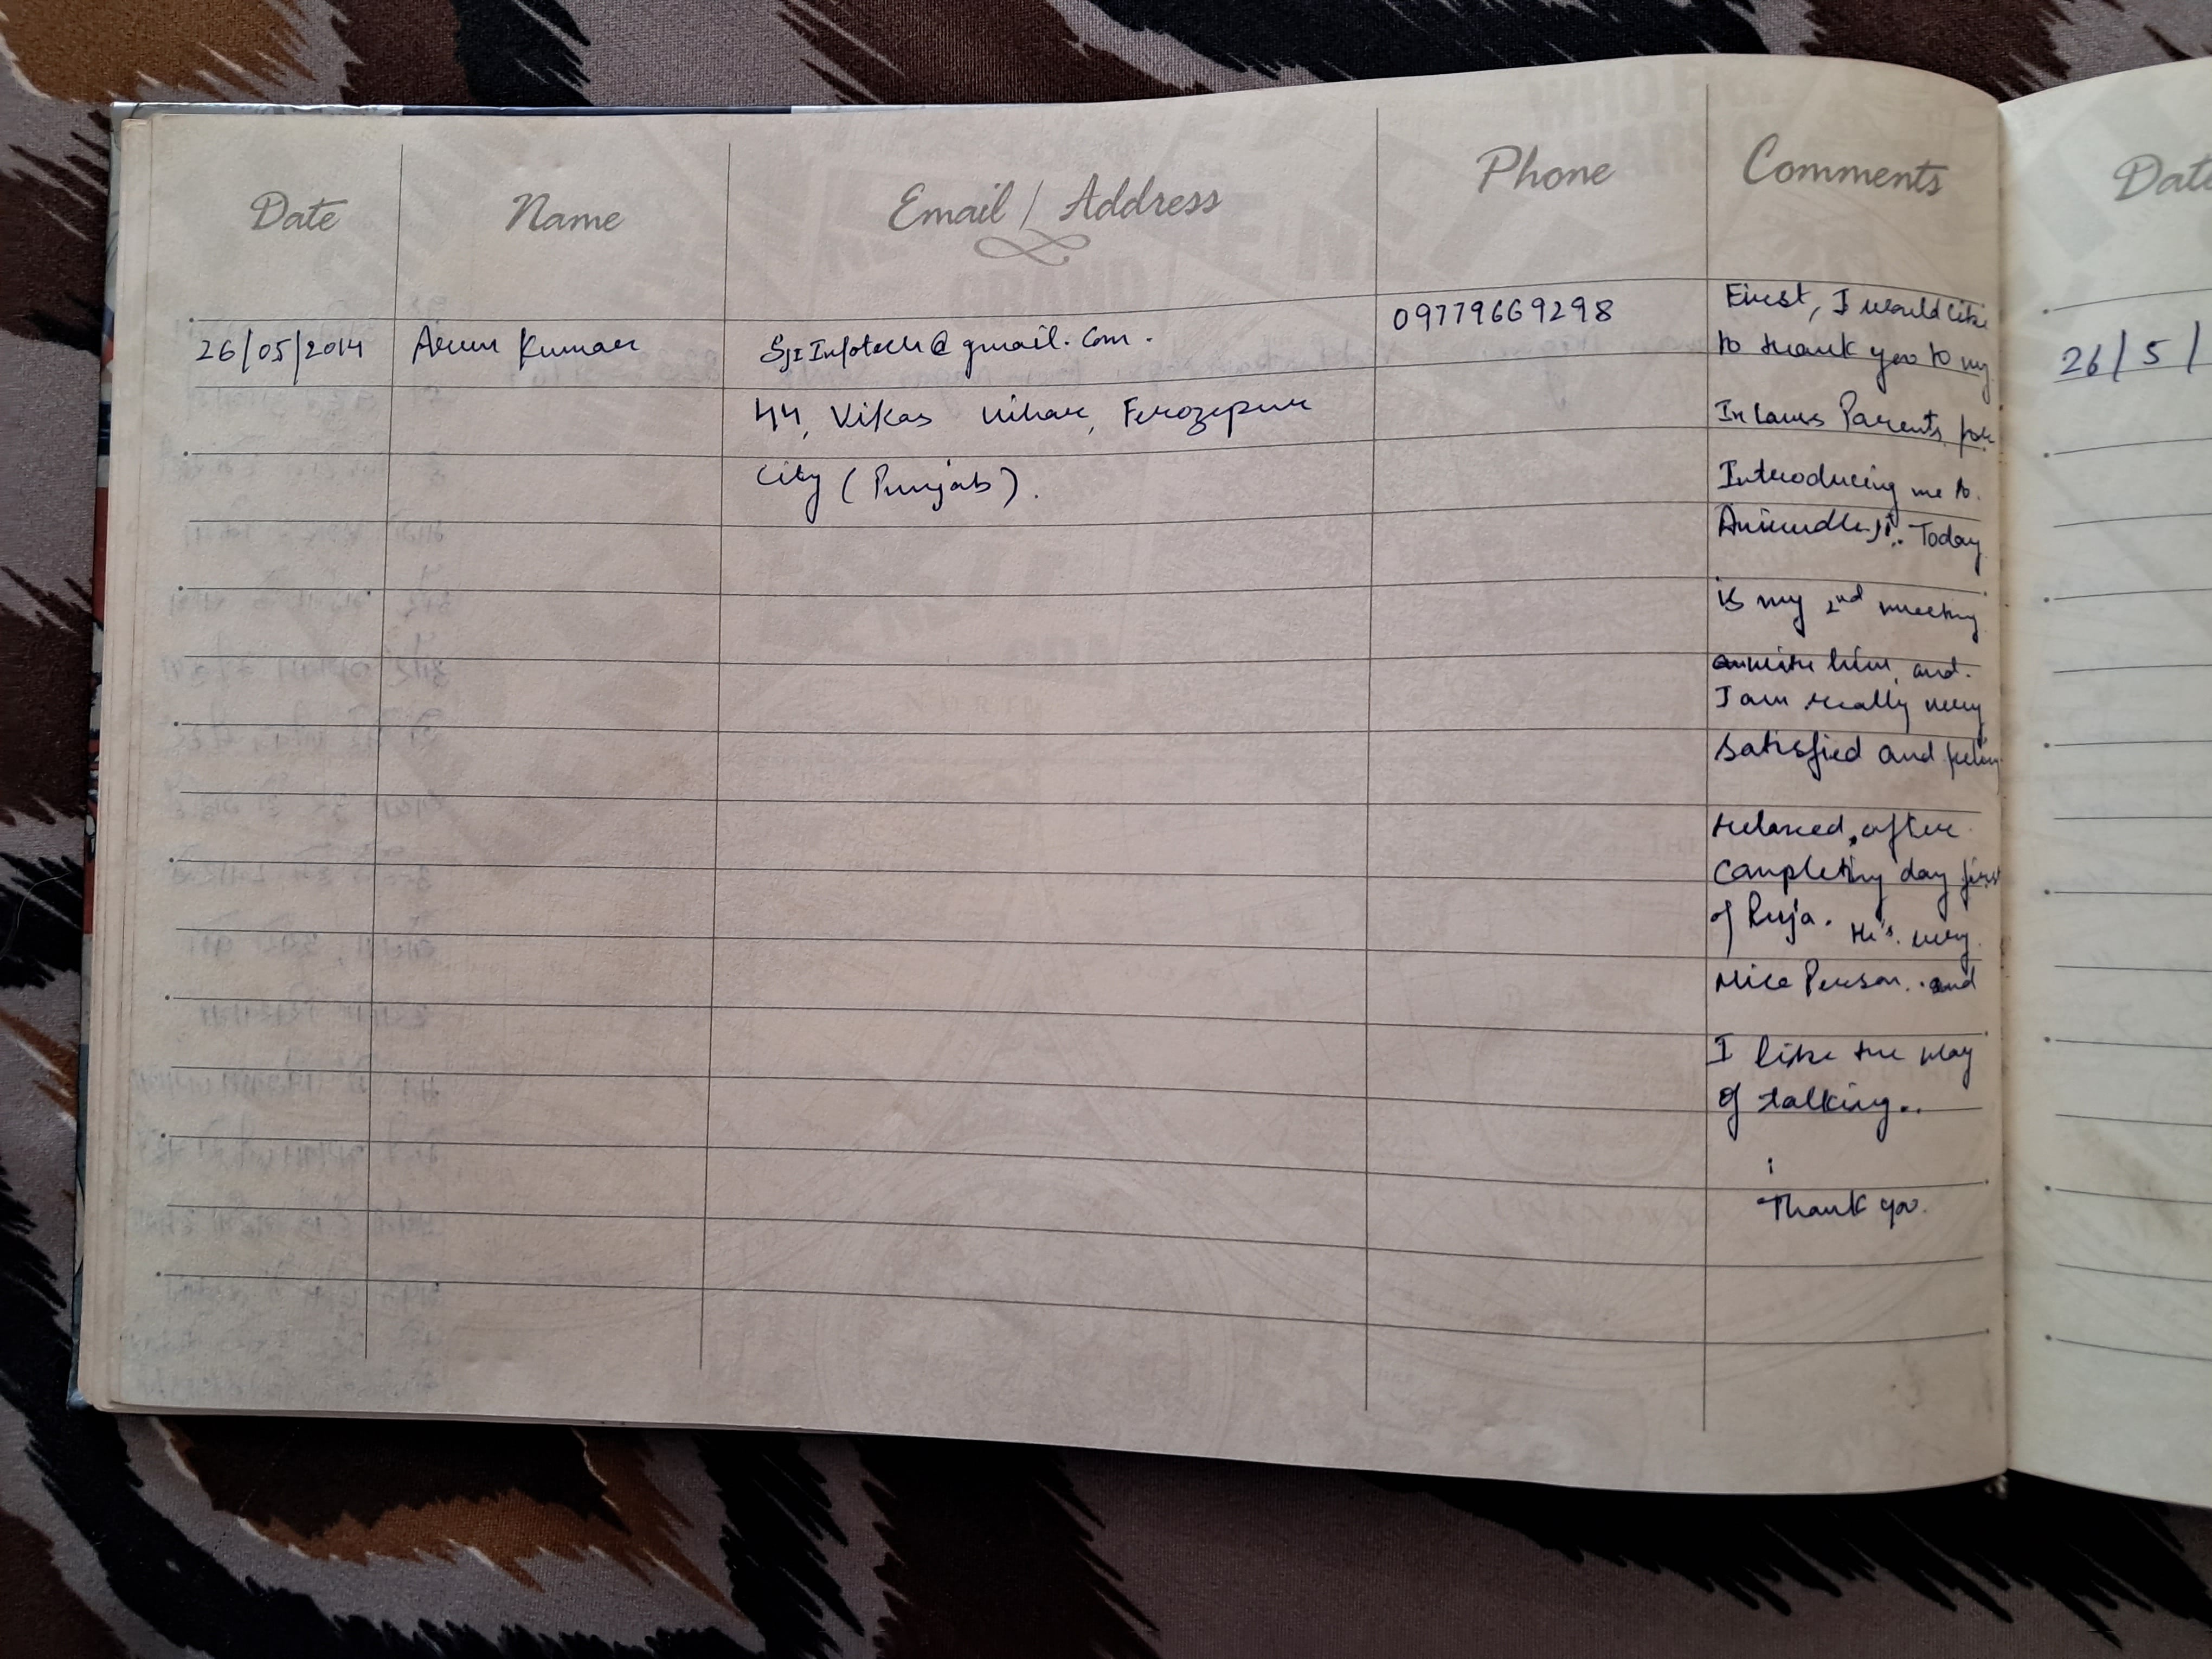 Date Name Email / Address Phone Comments Date
26/05/2014 Arun Kumar SjiInfotech@gmail.com. 09779669298 First, I would like
44, Vikas Vihar, Ferozepur to thank you to my 26/5/
City (Punjab). In Laws Parents, for
Introducing me to.
Anirudh Ji.. Today
is my 2nd meeting
with him, and.
I am really very
satisfied and feeling
relaxed, after
Completing day first
of Puja. He's very
Nice Person.. and
I like the way
of talking..
Thank you.